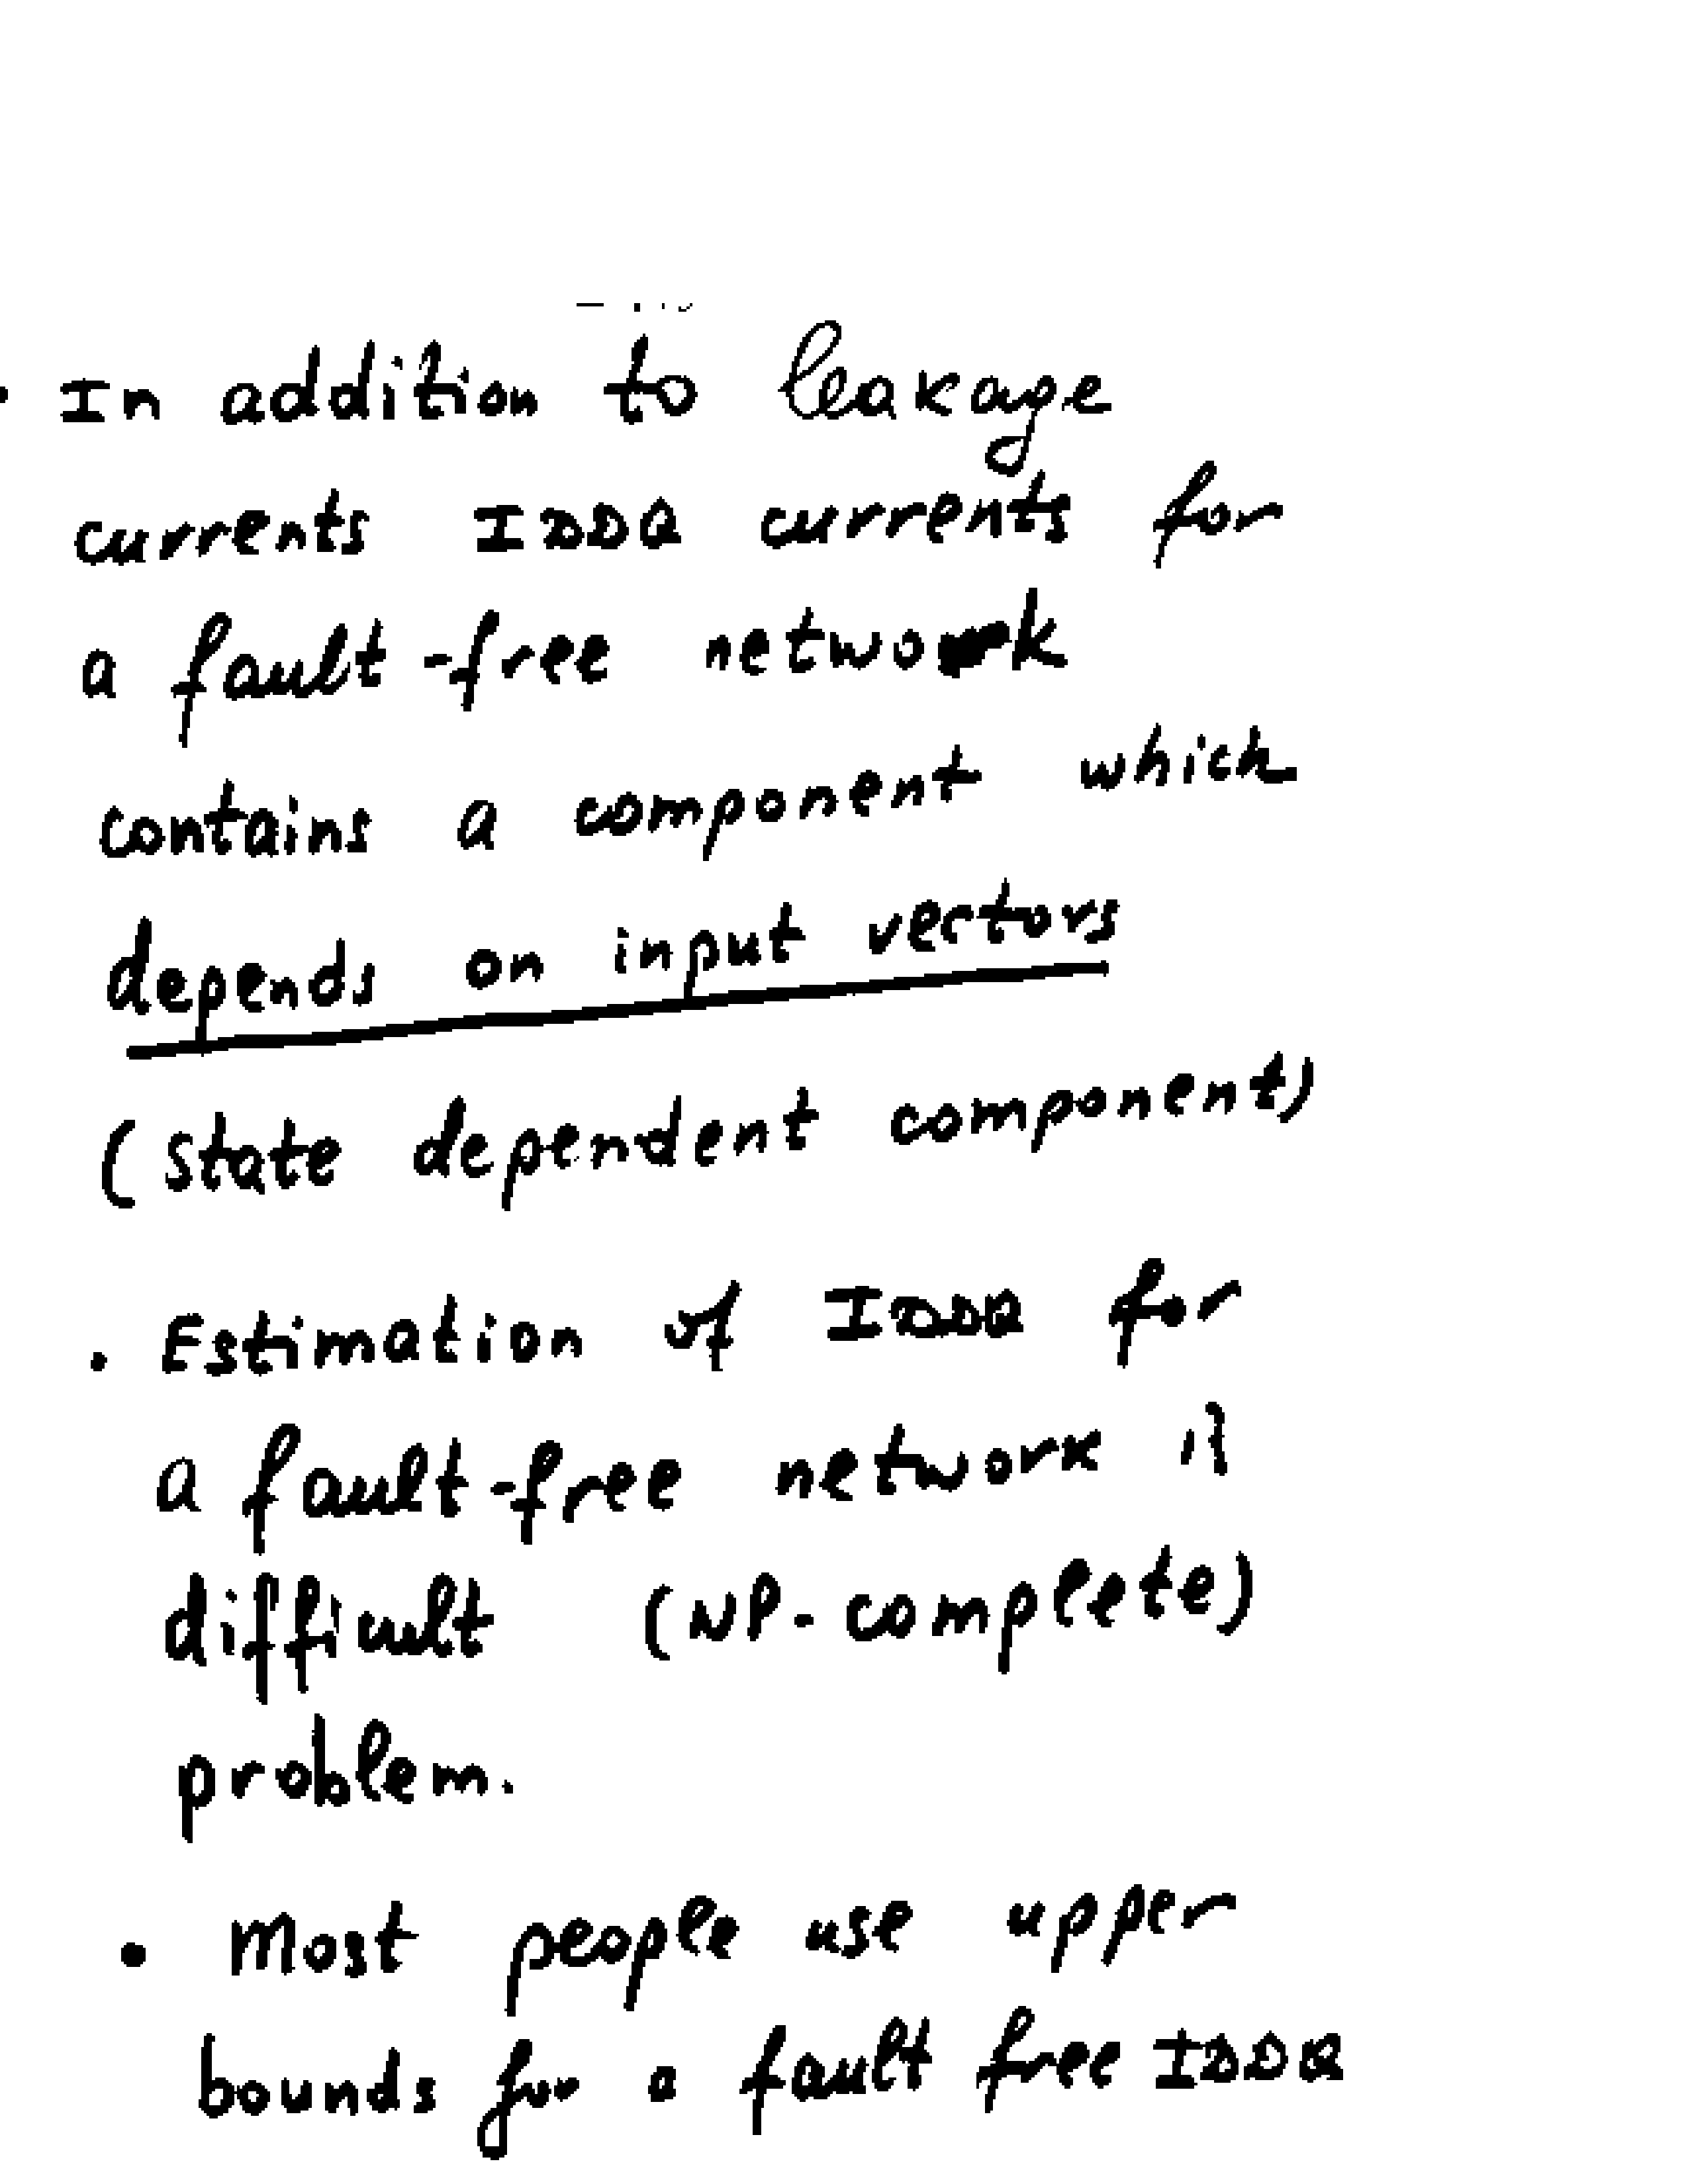 · In addition to leakage
currents IDDQ currents for
a fault-free network
contains a component which
depends on input vectors
(state dependent component)
· Estimation of IDDQ for
a fault-free network is
difficult (NP-complete)
problem.
• Most people use upper
bounds for a fault free IDDQ